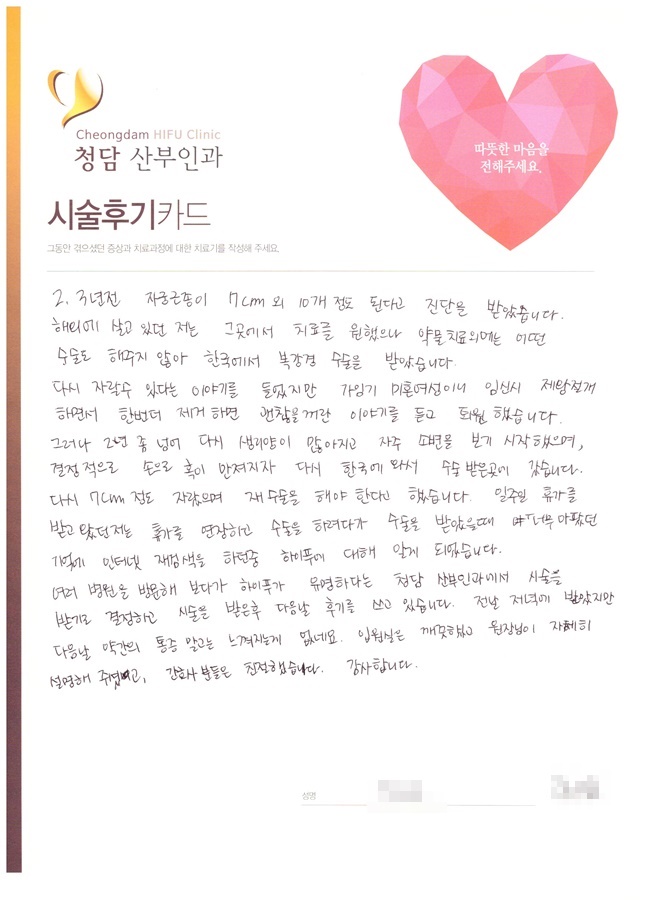 Cheongdam HIFU Clinic
청담 산부인과
따뜻한 마음을
전해주세요.
시술후기카드
그동안 겪으셨던 증상과 치료과정에 대한 치료기를 작성해 주세요.
2, 3년전 자궁근종이 7cm 외 10개 정도 된다고 진단을 받았습니다.
해외에 살고 있던 저는 그곳에서 치료를 원했으나 약물치료외에는 어떤
수술도 해주지 않아 한국에서 복강경 수술을 받았습니다.
다시 자랄수 있다는 이야기를 들었지만 가임기 미혼여성이니 임신시 제왕절개
하면서 한번더 제거하면 괜찮을꺼란 이야기를 듣고 퇴원했습니다.
그러나 2년 좀 넘어 다시 생리양이 많아지고 자주 소변을 보기 시작했으며,
결정적으로 손으로 혹이 만져지자 다시 한국에 와서 수술 받은곳에 갔습니다.
다시 7cm 정도 자랐으며 재수술을 해야 한다고 했습니다. 일주일 휴가를
받고 왔던저는 휴가를 연장하고 수술을 하려다가 수술을 받았을때 너무 아팠던
기억에 인터넷 재검색을 하던중 하이푸에 대해 알게 되었습니다.
여러 병원을 방문해 보다가 하이푸가 유명하다는 청담 산부인과에서 시술을
받기로 결정하고 시술을 받은후 다음날 후기를 쓰고 있습니다. 전날 저녁에 받았지만
다음날 약간의 통증 말고는 느껴지는게 없네요. 입원실은 깨끗하고 원장님이 자세히
설명해 주셨고, 간호사분들은 친절했습니다. 감사합니다.
성명